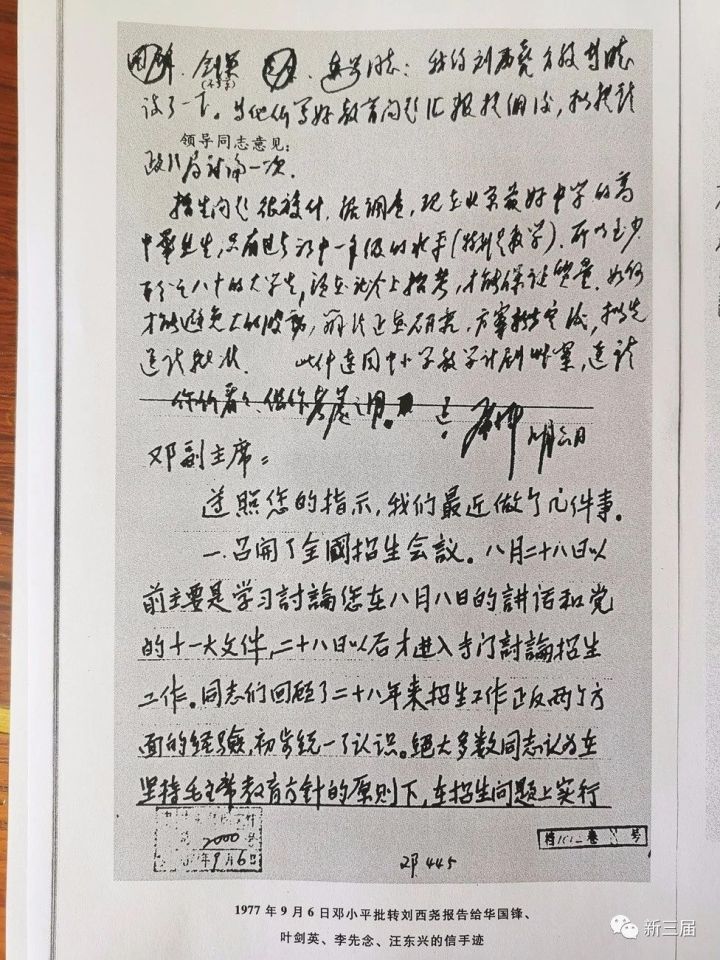 国锋、剑英、先念、东兴同志：我约刘西尧方毅等同志
谈了一下。当他们写好教育问题汇报提纲后，拟提请
领导同志意见：
政治局讨论一次。
招生问题很复杂。据调查，现在北京最好中学的高
中毕业生，只有过去初中一年级的水平(特别是数学)。所以至少
百分之八十的大学生，须在社会上招考，才能保证质量。如何
才能避免大的波动，办法正在研究，方案拟定后，拟先
送请批准。 此件连同中小学教学计划草案，送请
你们看看，供作参考之用。
邓副主席：
遵照您的指示，我们最近做了几件事。
一、召开了全國招生会议。八月二十八日以
前主要是学习討論您在八月八日的講话和党
的十一大文件，二十八日以后才进入专门討論招生
工作。同志们回顾了二十八年来招生工作正反两个方
面的经验，初步统一了认识。绝大多数同志认为在
坚持毛主席教育方針的原则下，在招生问题上实行
2000
9月6日
号
邓445
1977年9月6日邓小平批转刘西尧报告给华国锋、
叶剑英、李先念、汪东兴的信手迹
新三届